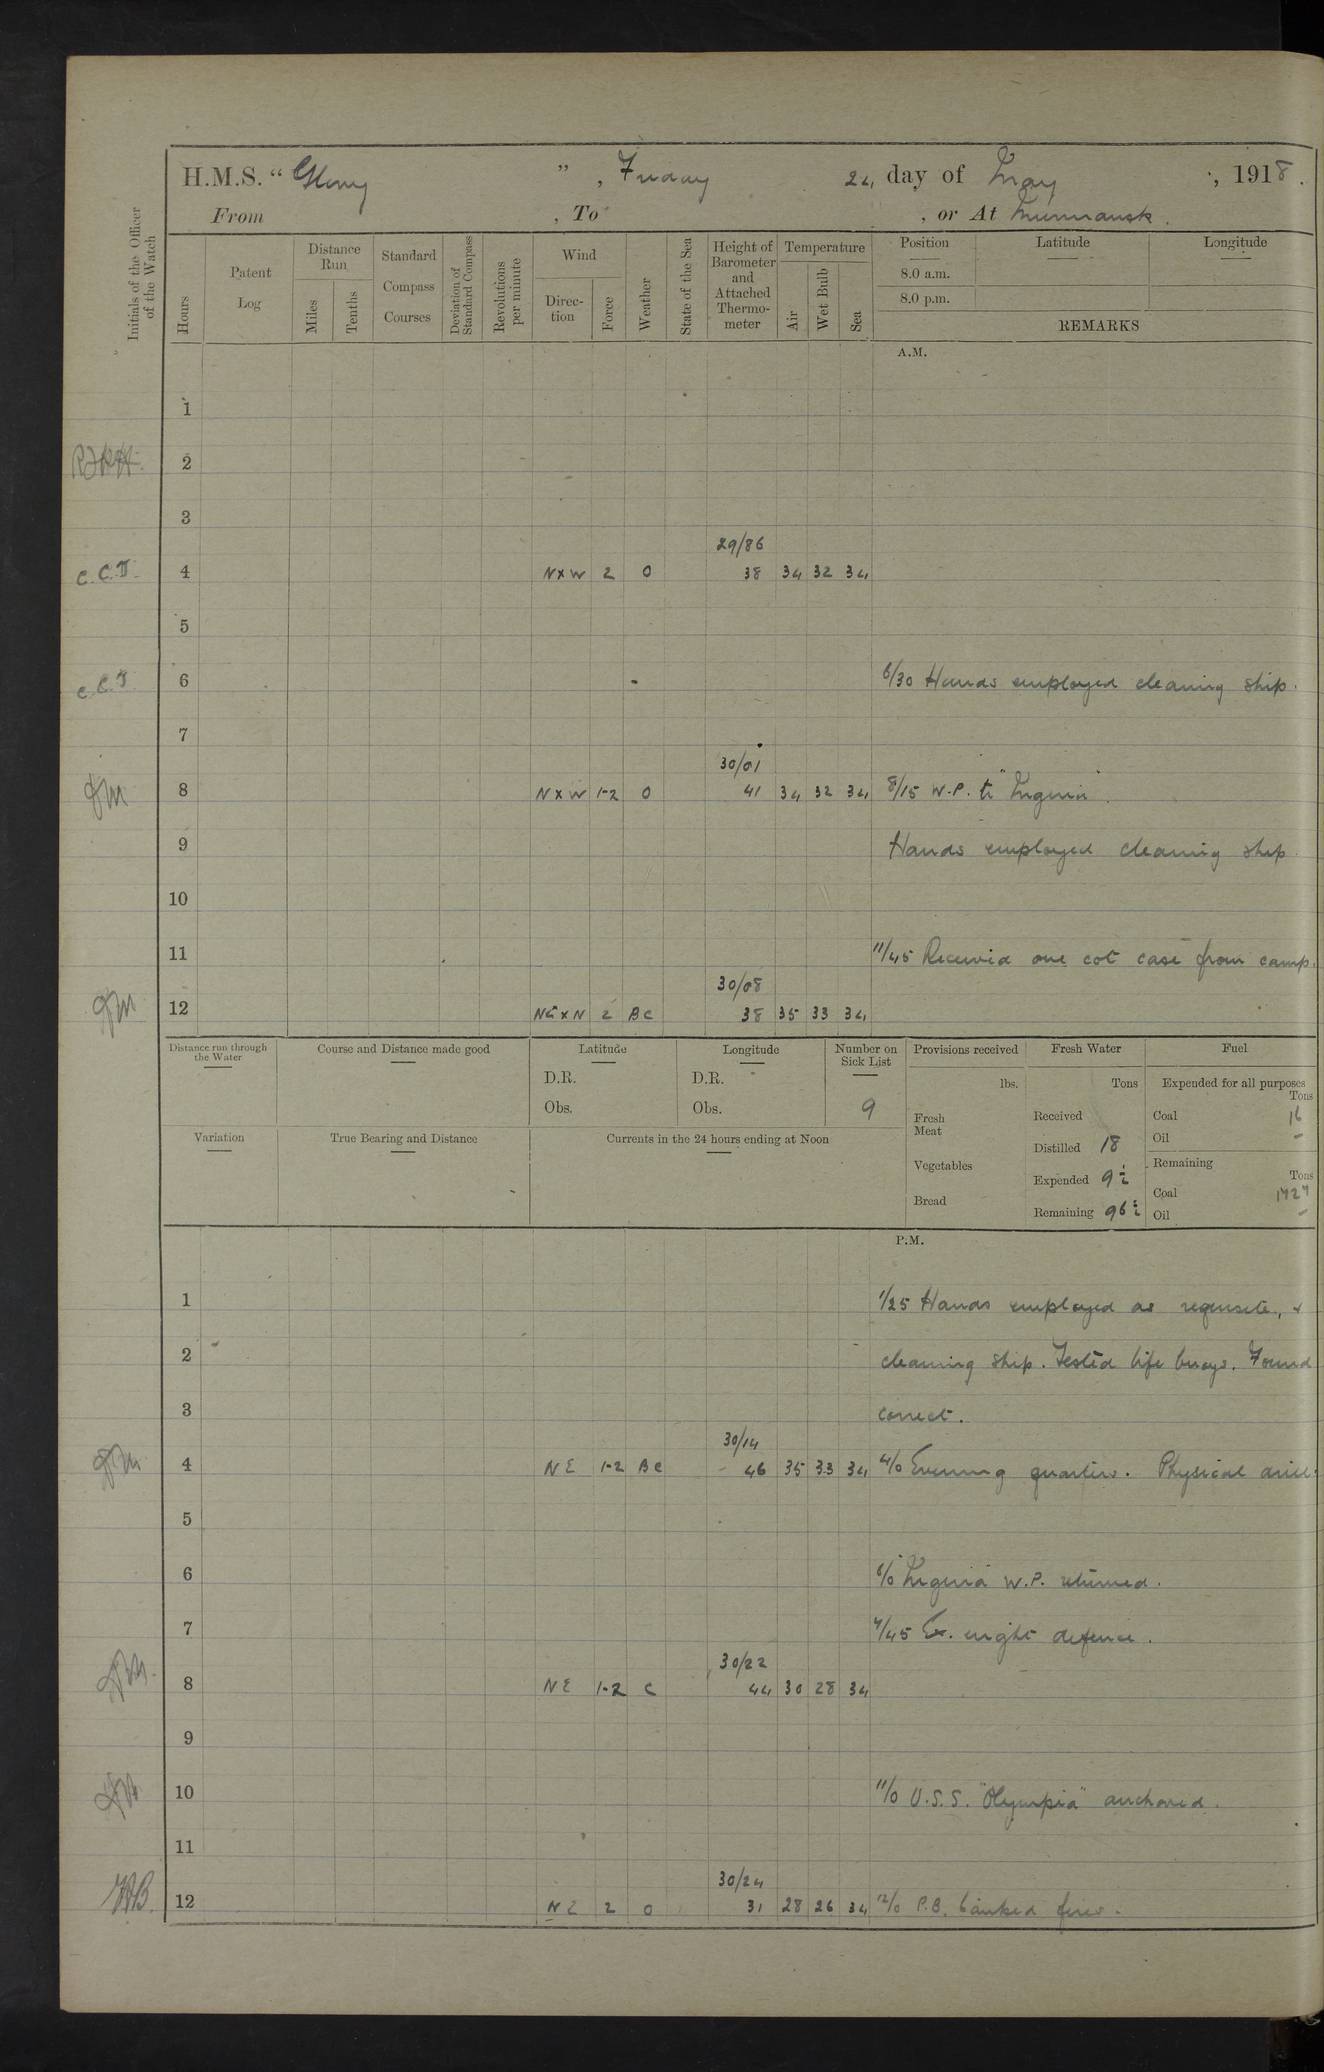 H.M.S. “ Glory ” , Friday 24 day of May , 1918.
From , To , or At Murmansk.
Initials of the Officer of the Watch
Hours
Patent Log
Distance Run
Miles
Tenths
Standard Compass Courses
Deviation of Standard Compass
Revolutions per minute
Wind
Direc-tion
Force
Weather
State of the Sea
Height of Barometer and Attached Thermo-meter
Temperature
Air
Wet Bulb
Sea
Position Latitude Longitude
8.0 a.m.
8.0 p.m.
REMARKS
A.M.
1
2
3
29/86
C.C.T. 4 N x W 2 O 38 34 32 34
5
C.C.T. 6 6/30 Hands employed cleaning ship.
7
30/01
8 N x W 1-2 O 41 34 32 34 8/15 W.P. to
9 Hands employed cleaning ship
10
11 11/45 Received one cot case from camp.
30/08
12 NE x N 2 BC 38 35 33 34
Distance run through the Water
Course and Distance made good
Latitude
D.R.
Obs.
Longitude
D.R.
Obs.
Number on Sick List
9
Provisions received
lbs.
Fresh Meat
Vegetables
Bread
Fresh Water
Tons
Received
Distilled 18
Expended 9½
Remaining 96½
Fuel
Expended for all purposes
Tons
Coal 16
Oil –
Remaining
Tons
Coal 1727
Oil –
Variation
True Bearing and Distance
Currents in the 24 hours ending at Noon
P.M.
1 1/25 Hands employed as requisite, &
2 cleaning ship. Tested life buoys. Found
3 correct.
30/14
4 NE 1-2 BC 46 35 33 34 4/0 Evening quarters. Physical drill.
5
6 6/0 W.P. returned.
7 7/45 Ex. night defence.
30/22
8 NE 1-2 C 44 30 28 34
9
10 11/0 U.S.S. "Olympia" anchored.
11
30/24
12 NE 2 O 31 28 26 34 12/0 P.B. banked fires.